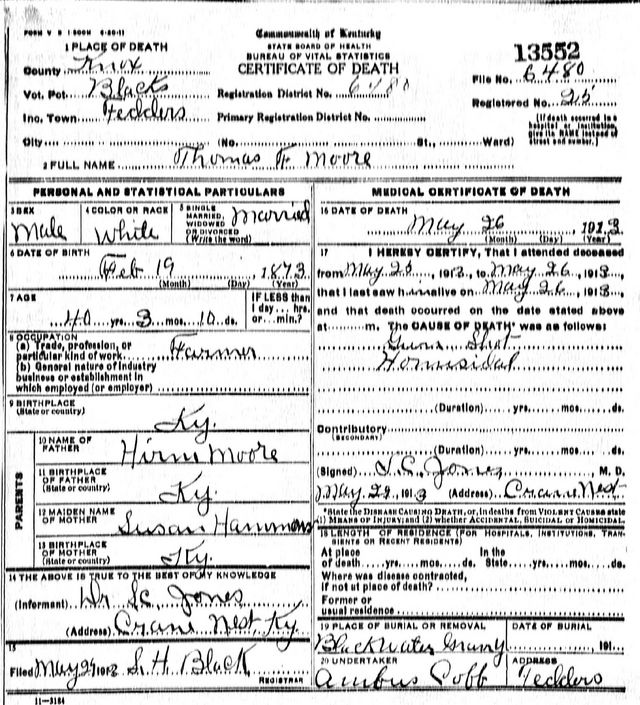 FORM V S 1 500M 4-20-11
Commonwealth of Kentucky
STATE BOARD OF HEALTH
BUREAU OF VITAL STATISTICS
CERTIFICATE OF DEATH
13552
1 PLACE OF DEATH
County Knox
Vot. Pct. Blacks
Inc. Town Fedders
City
Registration District No. 6480
Primary Registration District No.
File No. 6480
Registered No. 25
(No. St., Ward)
(If death occurred in a hospital or institution, give its NAME instead of street and number.)
2 FULL NAME Thomas F. Moore
PERSONAL AND STATISTICAL PARTICULARS
3 SEX Male
4 COLOR OR RACE White
5 SINGLE, MARRIED, WIDOWED OR DIVORCED (Write the word) Married
6 DATE OF BIRTH
Feb 19 1873
(Month) (Day) (Year)
7 AGE
40 yrs. 3 mos. 10 ds.
IF LESS than 1 day, hrs. or min.?
8 OCCUPATION
(a) Trade, profession, or particular kind of work Farmer
(b) General nature of industry business or establishment in which employed (or employer)
9 BIRTHPLACE
(State or country) Ky.
PARENTS
10 NAME OF FATHER Hirm Moore
11 BIRTHPLACE OF FATHER (State or country) Ky.
12 MAIDEN NAME OF MOTHER Susan Hammons
13 BIRTHPLACE OF MOTHER (State or country) Ky.
14 THE ABOVE IS TRUE TO THE BEST OF MY KNOWLEDGE
(Informant) Dr Jones
(Address) Crane Nest Ky
15
Filed May 29 1913 S. H. Black
REGISTRAR
11-3184
MEDICAL CERTIFICATE OF DEATH
16 DATE OF DEATH
May 26 1913
(Month) (Day) (Year)
17 I HEREBY CERTIFY, That I attended deceased
from May 25, 1913, to May 26, 1913
that I last saw him alive on May 26, 1913
and that death occurred on the date stated above
at m. The CAUSE OF DEATH* was as follows:
Gunn Shot
Homisidal
(Duration) yrs. mos. ds.
Contributory
(SECONDARY)
(Duration) yrs. mos. ds.
(Signed) Jones M. D.
May 29, 1913 (Address) Crane Nest
*State the DISEASE CAUSING DEATH, or, in deaths from VIOLENT CAUSES state (1) MEANS OF INJURY; and (2) whether ACCIDENTAL, SUICIDAL or HOMICIDAL.
18 LENGTH OF RESIDENCE (FOR HOSPITALS, INSTITUTIONS, TRANSIENTS OR RECENT RESIDENTS)
At place of death yrs. mos. ds. In the State yrs. mos. ds.
Where was disease contracted, if not at place of death?
Former or usual residence
19 PLACE OF BURIAL OR REMOVAL
Black Water
DATE OF BURIAL
191
20 UNDERTAKER
Ambus Cobb
ADDRESS
Fedders